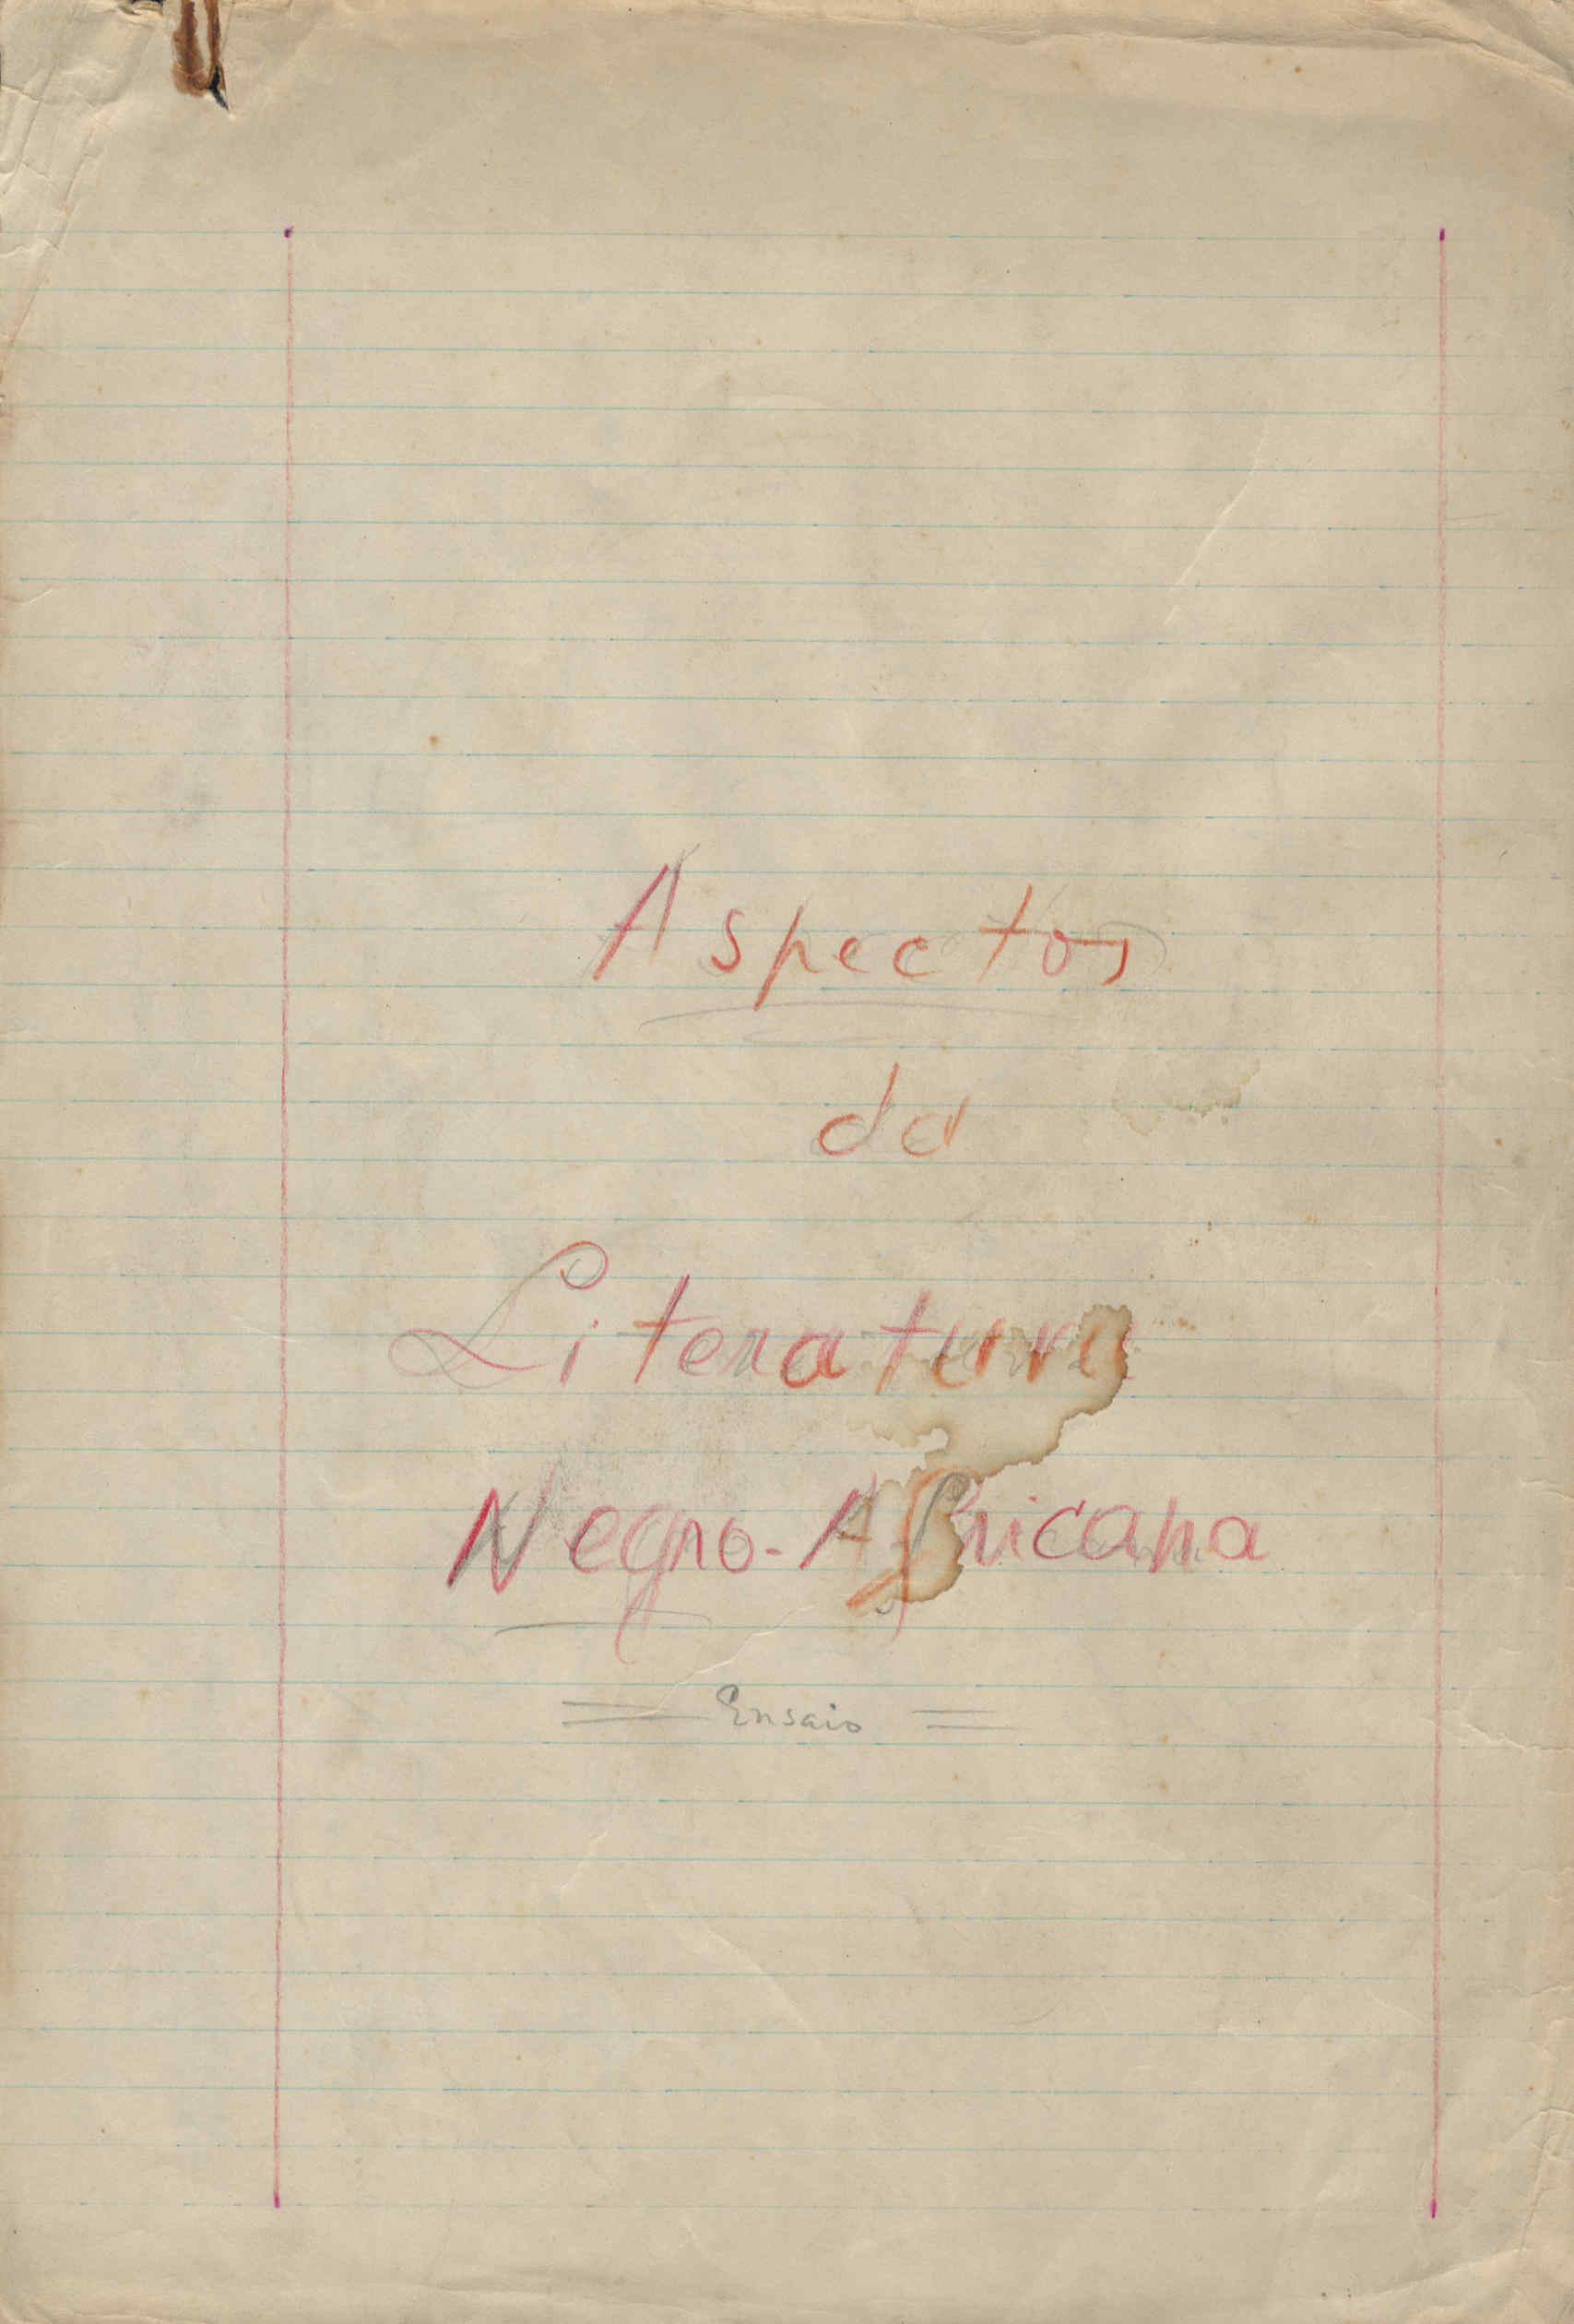 Aspectos
da
Literatura
Negro-Africana
= Ensaio =